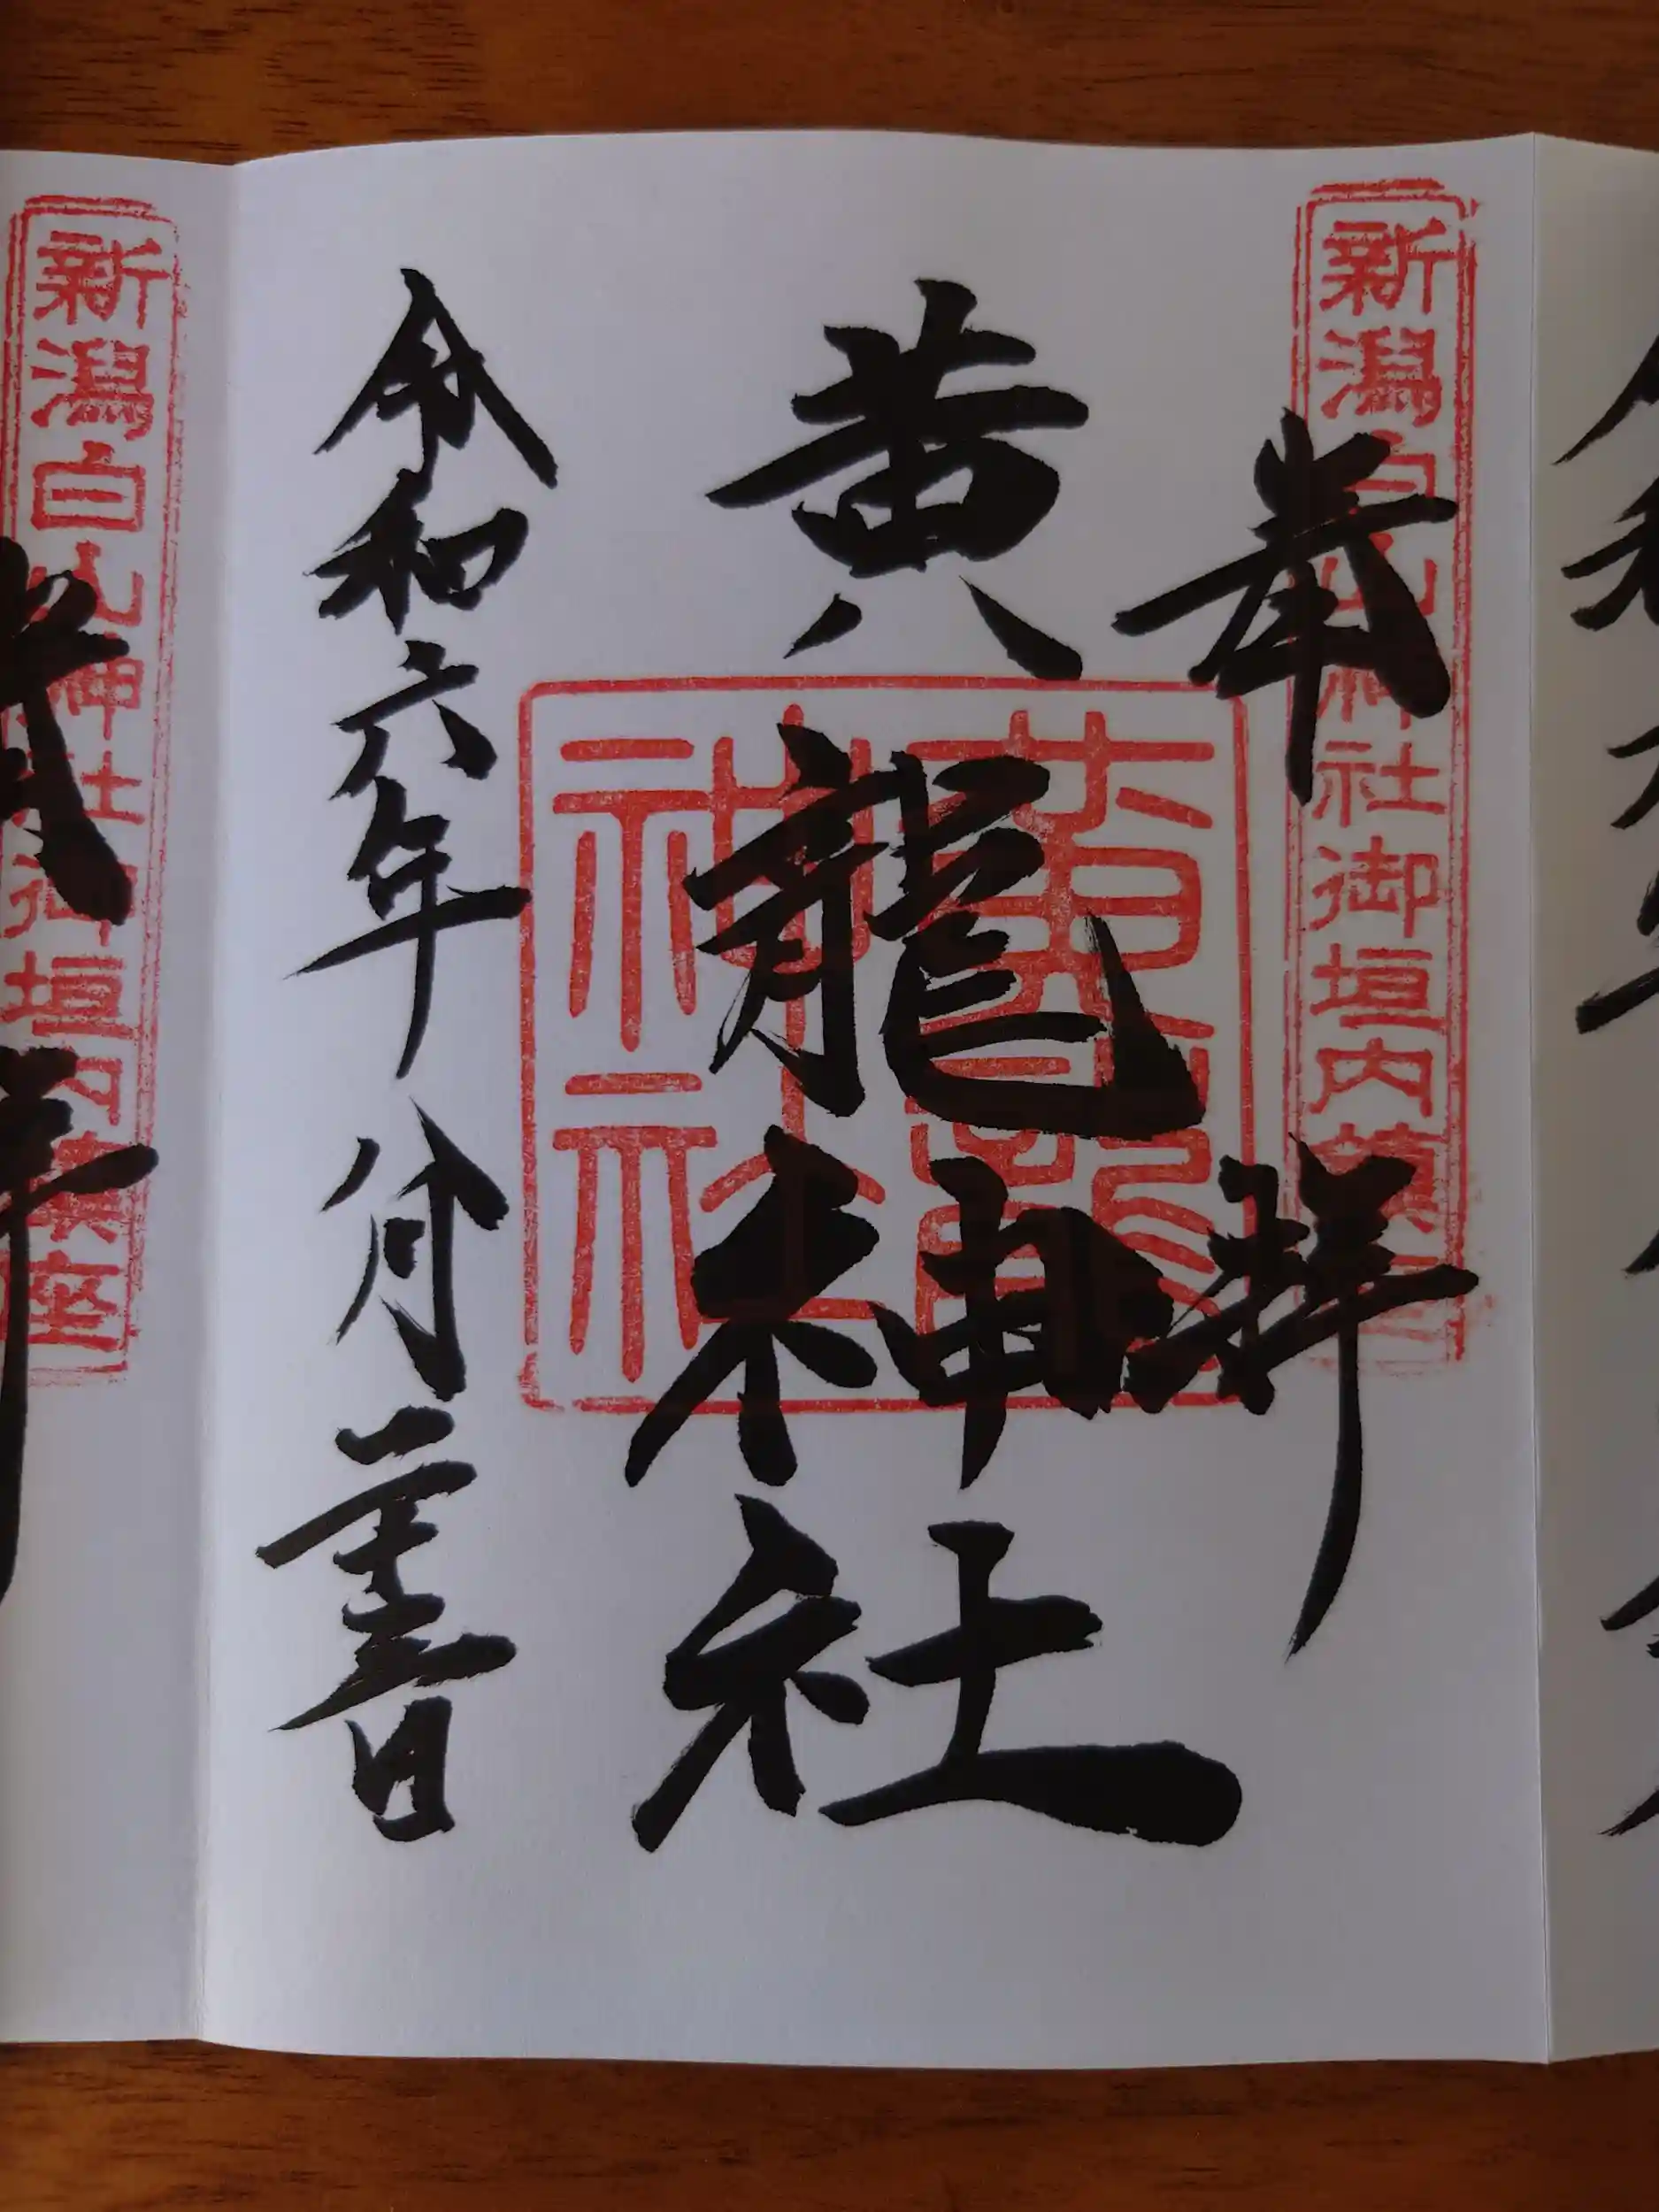 新潟白山神社御垣内鎮座
奉拝
黄龍神社
黄龍神社
令和六年八月
日
新潟白山神社御垣内鎮座